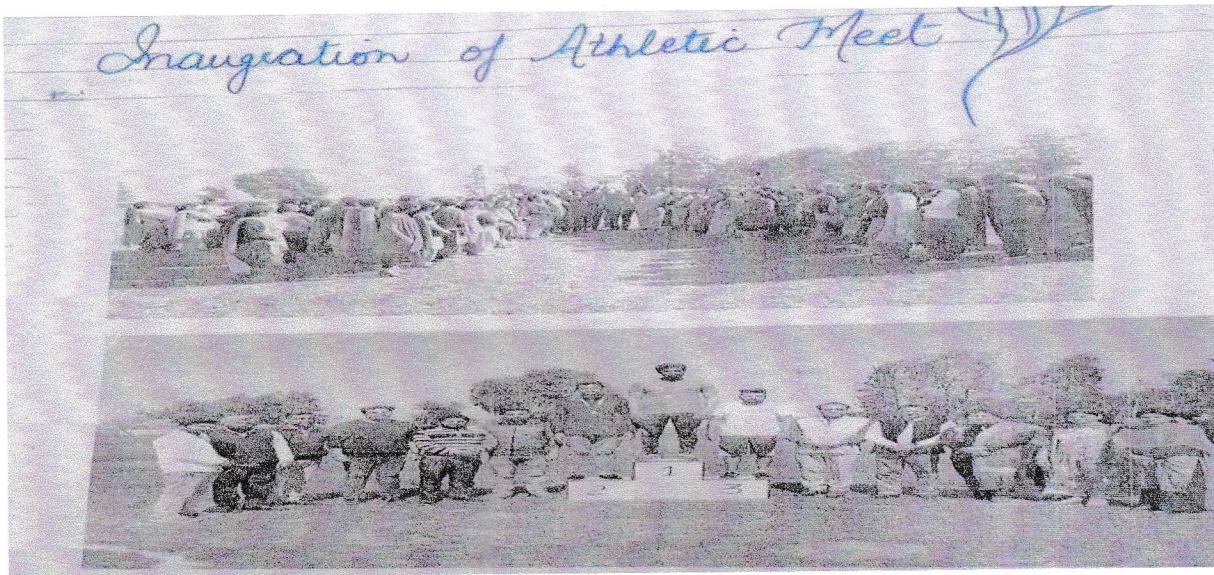 Inaugration of Athletic Meet
1
2 3